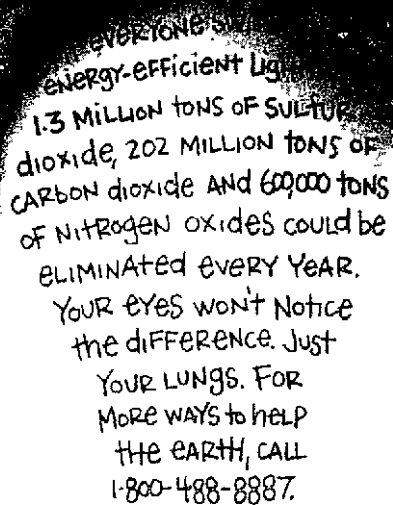 EVERYONE
ENERGY-EFFICIENT
1.3 MILLION TONS OF SULFUR
DIOXIDE, 202 MILLION TONS OF
CARBON DIOXIDE AND 600,000 TONS
OF NITROGEN OXIDES COULD be
ELIMINATED EVERY YEAR.
YOUR EYES WON'T NOTICE
the DIFFERENCE. JUST
YOUR LUNGS. FOR
MORE WAYS to heLP
tHE EARTH, CALL
1-800-488-8887.